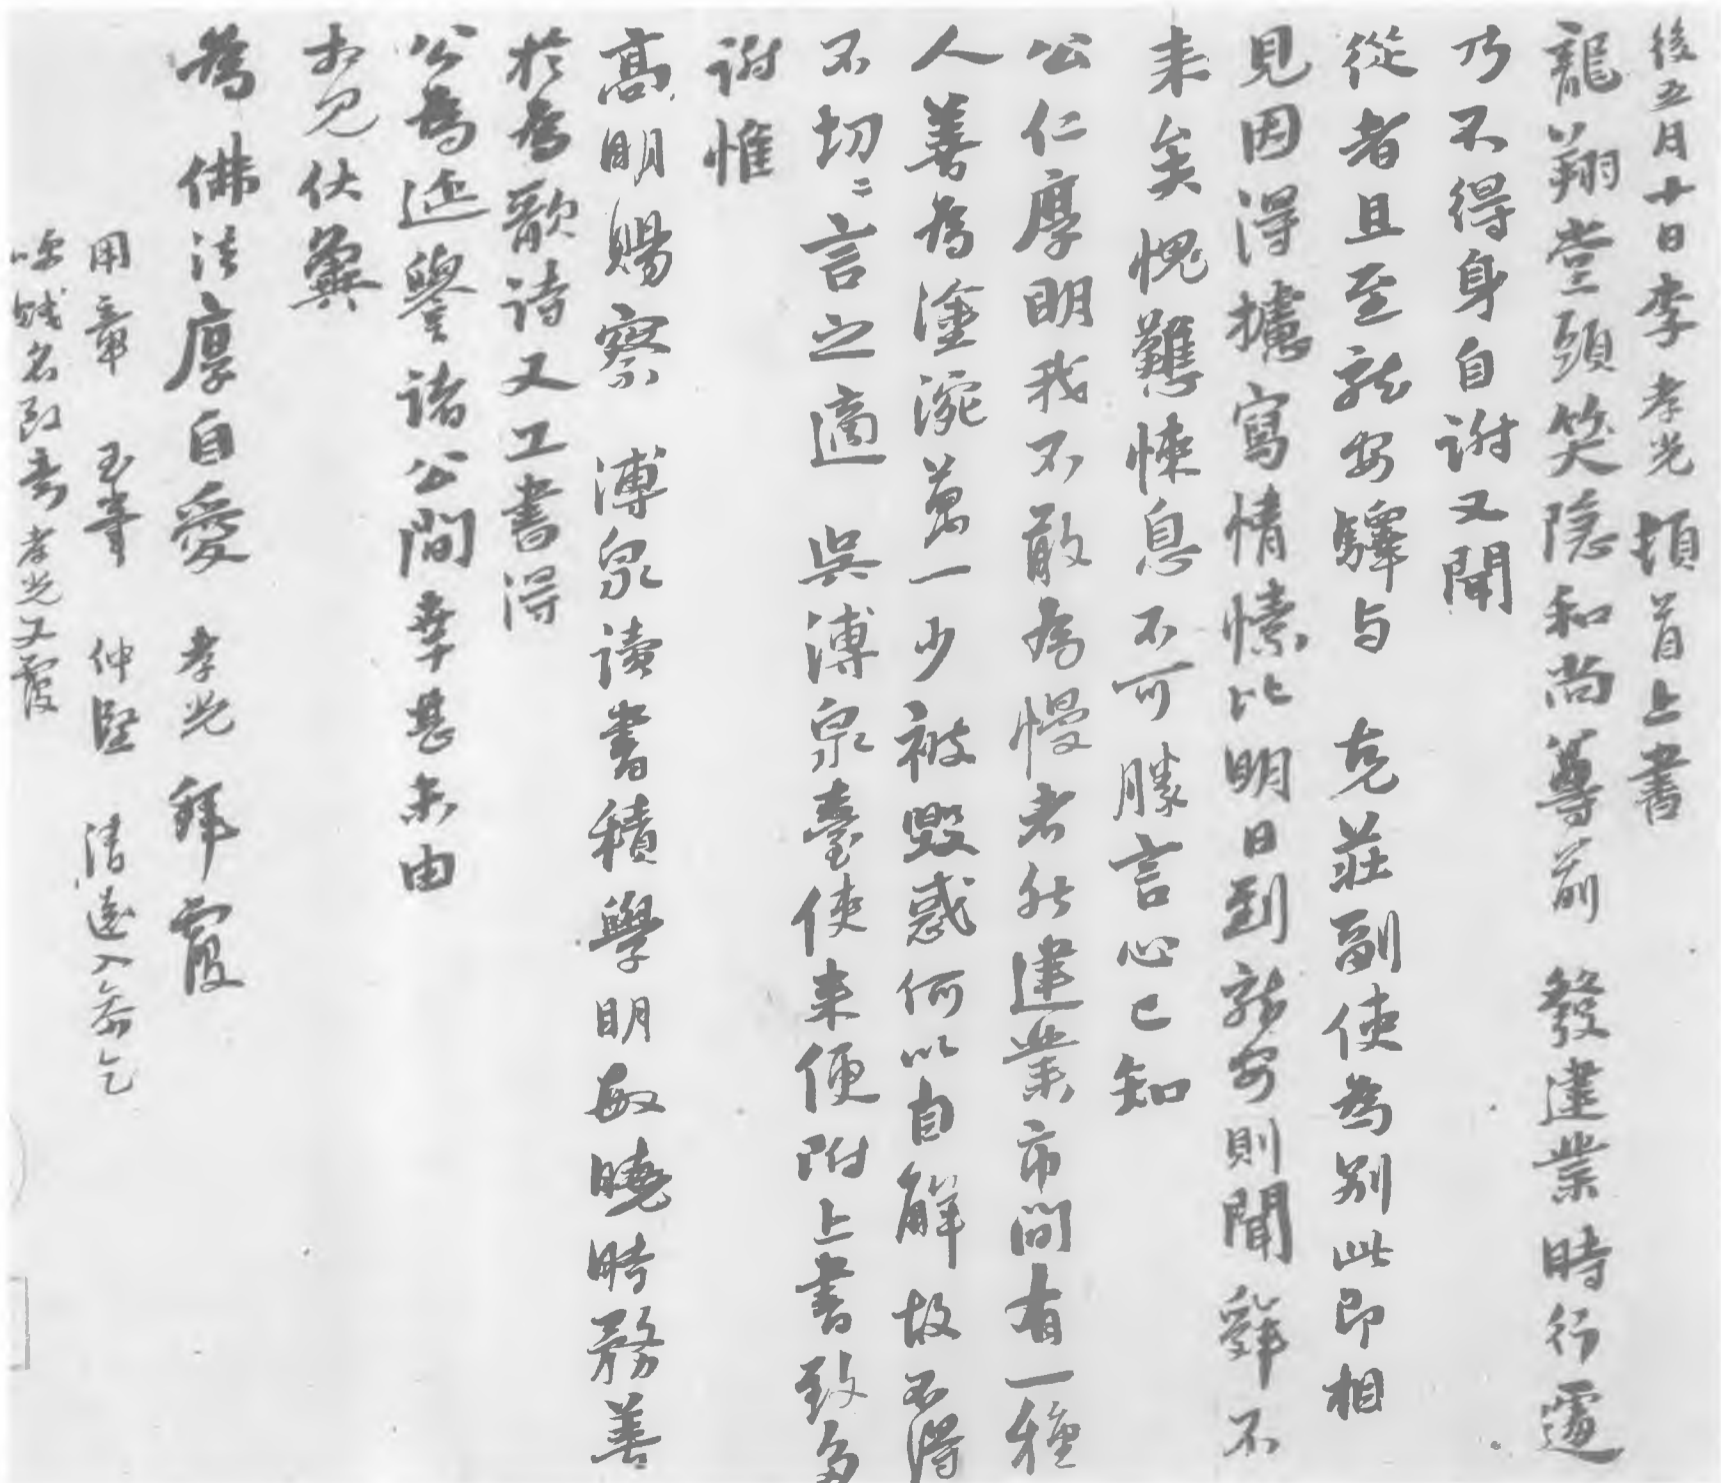 後五月十日李孝光頓首上書
龍翔堂頭笑隱和尚尊前 發建業時行遽
乃不得身自謝又聞
從者且至龍安驛与 克莊副使為別此即相
見因得攄寫情愫比明日到龍安則聞舜不
来矣愧難悚息不可勝言心已知
公仁厚明我不敢為慢者然建業市間有一種
人善為塗涴萬一少被毀惑何以自解故不得
不切〻言之適 吳溥泉臺使来便附上書致身
謝惟
高明賜察 溥泉讀書積學明敏曉時務善
於為歌詩又工書得
公為延譽諸公間幸甚未由
相見伏冀
為佛法厚自愛 孝光拜覆
用章 玉峯 仲堅 清遠入、乞
賤名致意 孝光又覆